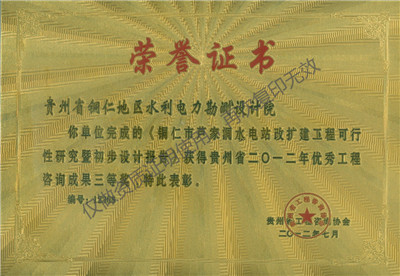 荣誉证书
贵州省铜仁地区水利电力勘测设计院
你单位完成的《铜仁市芦家洞水电站改扩建工程可行
性研究暨初步设计报告》获得贵州省二〇一二年优秀工程
咨询成果三等奖，特此表彰。
编号：
贵州省工程咨询协会
二〇一二年七月
复印无效